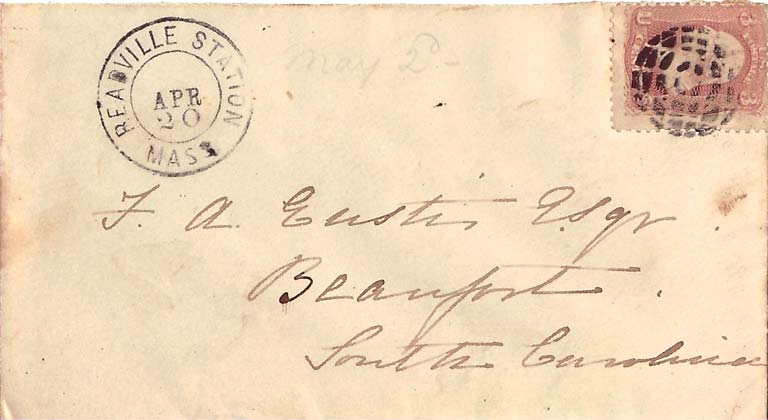 READVILLE STATION
APR
20
MASS
May 2d
U 3
3
F. A. Eustis Esqr.
Beaufort
South Carolina